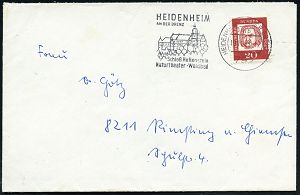 HEIDENHEIM
AN DER BRENZ
Schloß Hellenstein
Naturtheater · Waldbad
HEIDENHEIM
20
Frau
v. Götz
8211 Rimsting
Schulstr. 4.